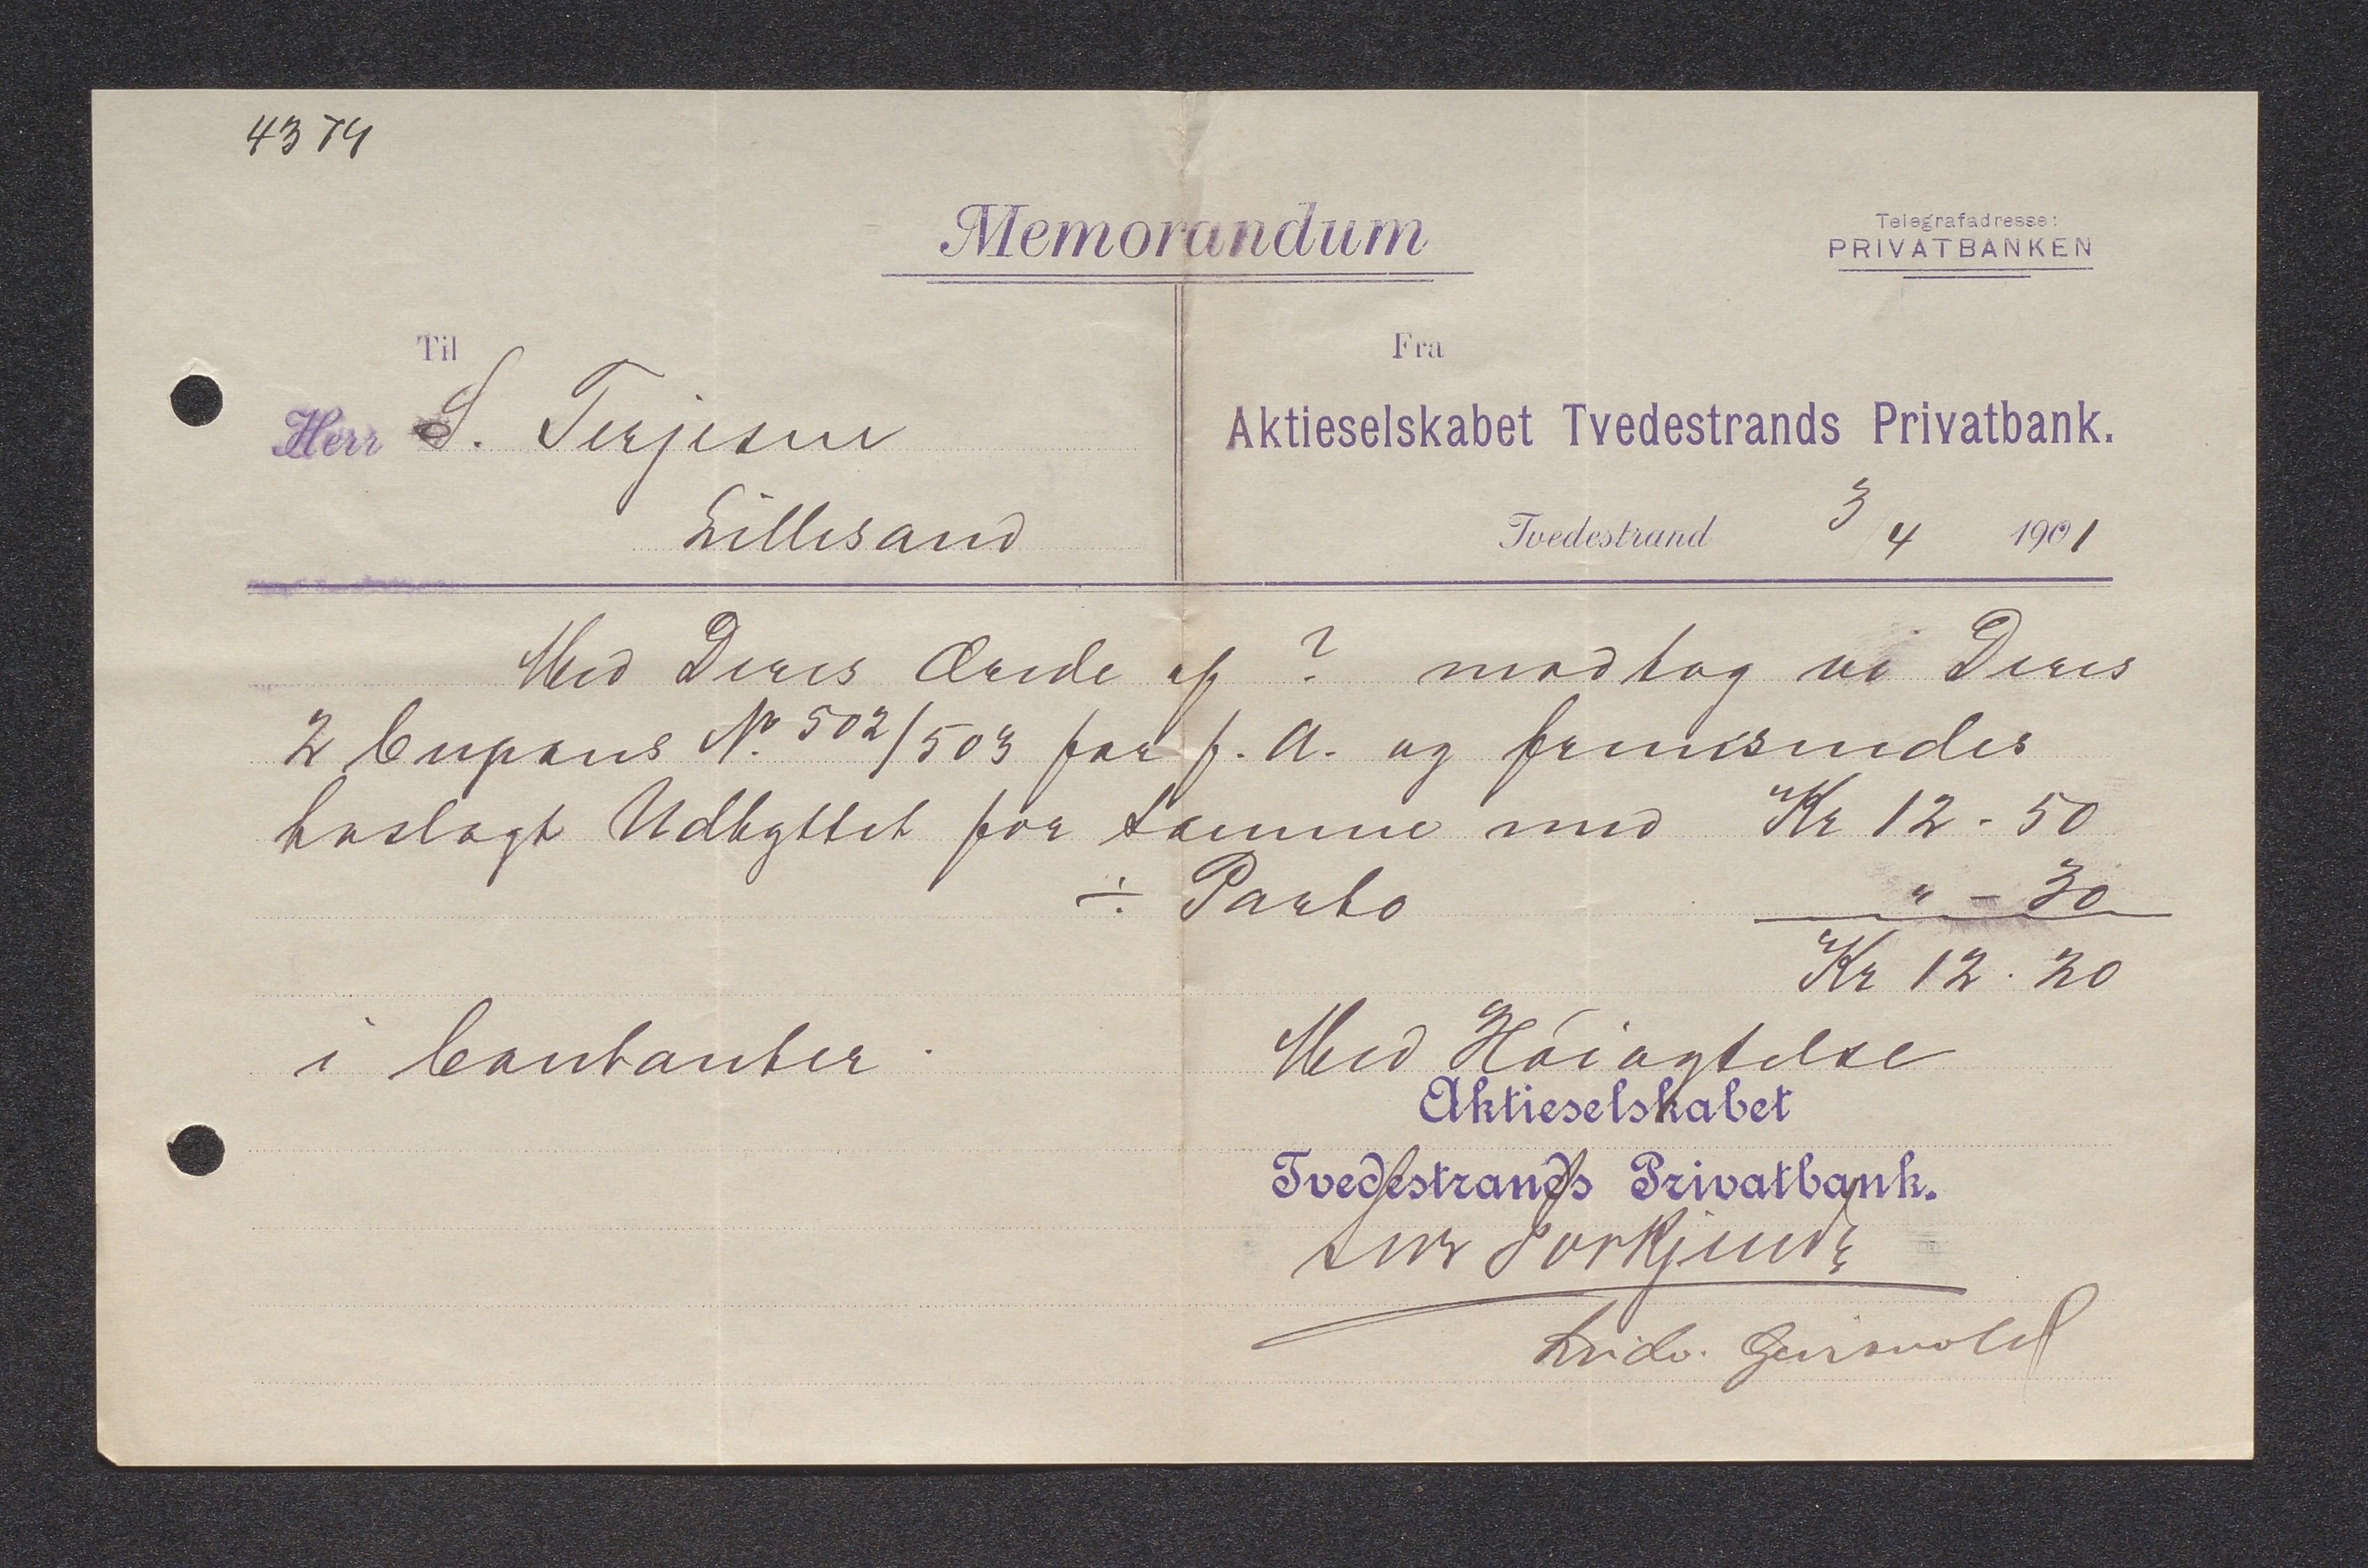 4374
Memorandum
Telegrafadresse:
PRIVATBANKEN
Til
Herr S. Terjesen
Lillesand
Fra
Aktieselskabet Tvedestrands Privatbank.
Tvedestrand 3/4 1901
Med Deres Ærede af ? modtog vi Deres
2 Cupons No. 502/503 for f. A. og fremsendes
hoslagt Udbyttet for samme med Kr 12 - 50
÷ Porto " - 30
Kr 12. 20
i Contanter.
Med Höiagtelse
Aktieselskabet
Tvedestrands Privatbank.